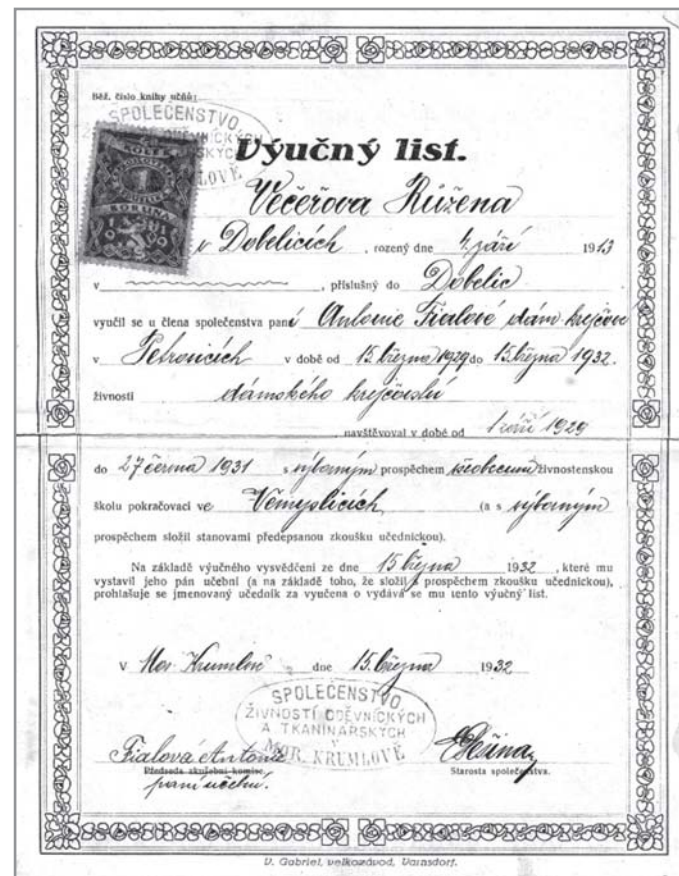 Běž. číslo knihy učňů:
SPOLEČENSTVO
KOLEK
1
KORUNA
1919
Výučný list.
Večeřova Růžena
v Dobelicích , rozený dne 4. září 1913
v , příslušný do Dobelic
vyučil se u člena společenstva paní Antonie Fialové dám. krejčov
v Petrovicích v době od 15. března 1929 do 15. března 1932.
živnosti dámského krejčovství
navštěvoval v době od 1 září 1929
do 27 června 1931 s výborným prospěchem všeobecnou živnostenskou
školu pokračovací ve Vémyslicích (a s výborným
prospěchem složil stanovami předepsanou zkoušku učednickou).
Na základě výučného vysvědčení ze dne 15 března 1932 , které mu
vystavil jeho pán učební (a na základě toho, že složil s prospěchem zkoušku učednickou),
prohlašuje se jmenovaný učedník za vyučena o vydává se mu tento výučný list.
V Mor. Krumlově dne 15. března 1932
SPOLEČENSTVO
ŽIVNOSTÍ ODĚVNICKÝCH
A TKANINÁŘSKÝCH
V
MOR. KRUMLOVĚ
Fialová Antonie
Předseda zkušební komise.
paní učební.
Starosta společenstva.
U. Gabriel, velkozávod, Varnsdorf.